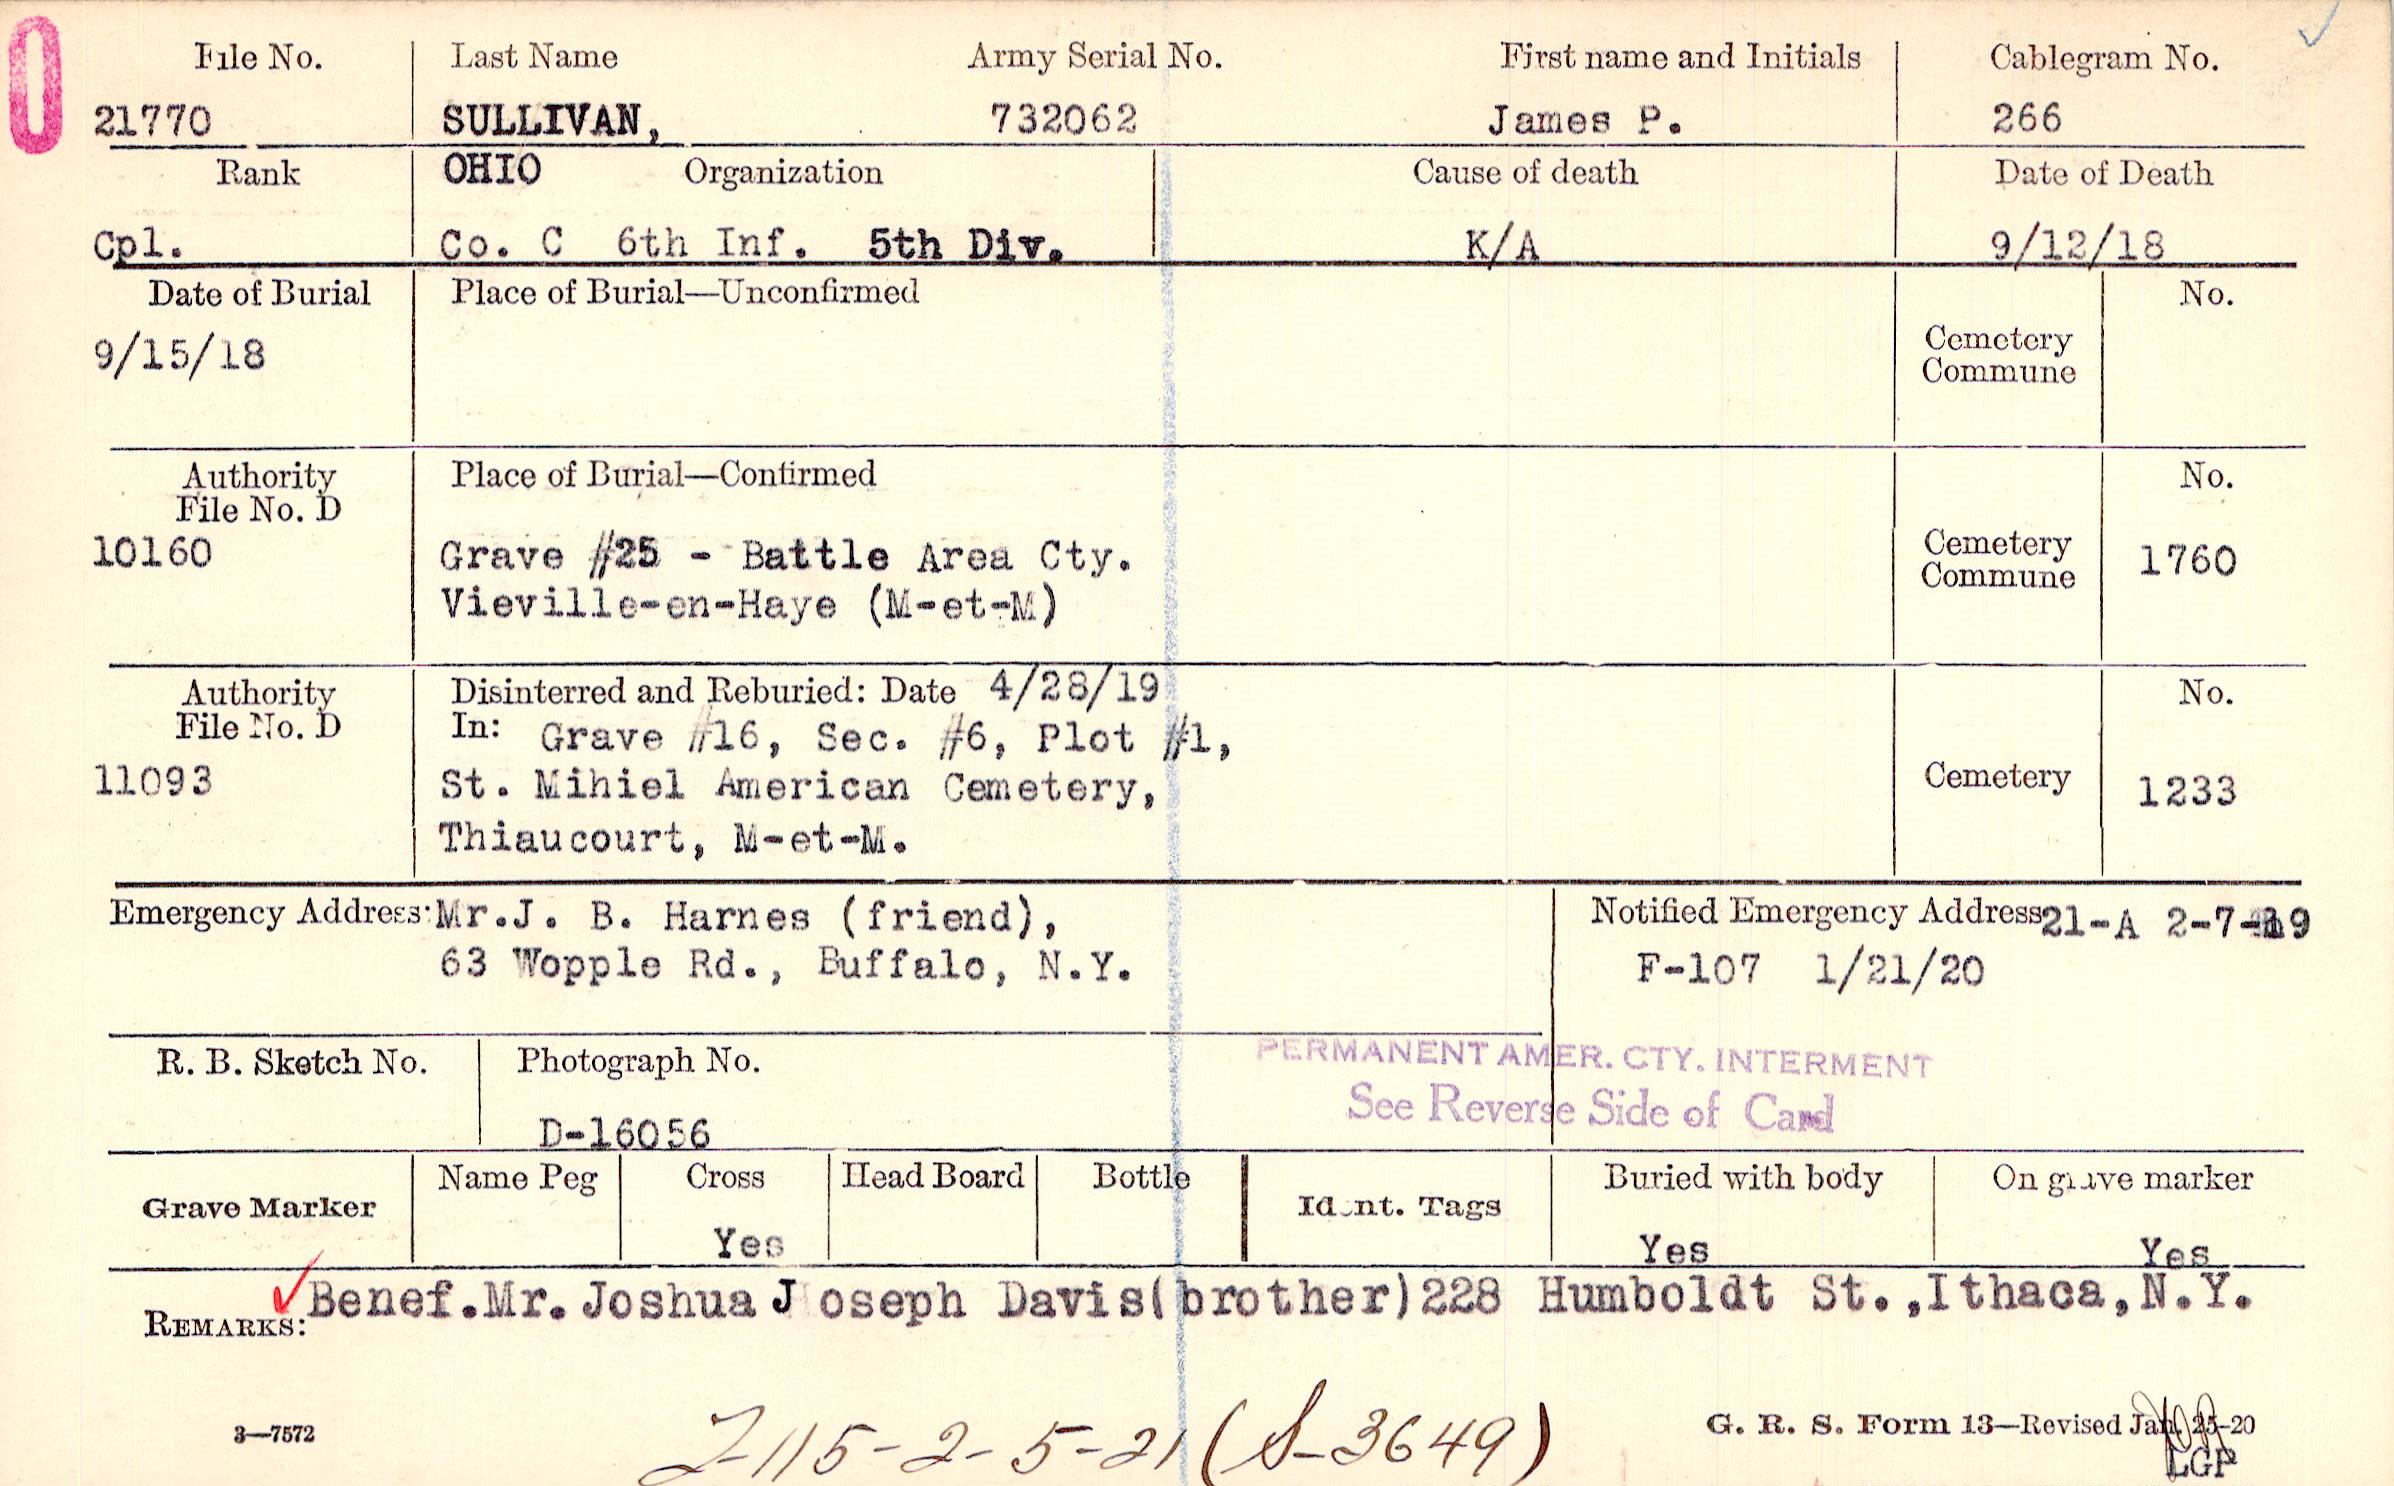 0
File No. Last Name Army Serial No. First name and Initials Cablegram No.
21770 SULLIVAN, 732062 James P. 266
Rank OHIO Organization Cause of death Date of Death
Cpl. Co. C 6th Inf. 5th Div. K/A 9/12/18
Date of Burial Place of Burial—Unconfirmed No.
9/15/18 Cemetery
Commune
Authority Place of Burial—Confirmed No.
File No. D
10160 Grave #25 - Battle Area Cty. Cemetery 1760
Vieville-en-Haye (M-et-M) Commune
Authority Disinterred and Reburied: Date 4/28/19 No.
File No. D In: Grave #16, Sec. #6, Plot #1,
11093 St. Mihiel American Cemetery, Cemetery 1233
Thiaucourt, M-et-M.
Emergency Address: Mr.J. B. Harnes (friend), Notified Emergency Address 21-A 2-7-19
63 Wopple Rd., Buffalo, N.Y. F-107 1/21/20
R. B. Sketch No. Photograph No. PERMANENT AMER. CTY. INTERMENT
See Reverse Side of Card
D-16056
Name Peg Cross Head Board Bottle Buried with body On grave marker
Grave Marker Ident. Tags
Yes Yes Yes
REMARKS: Benef.Mr. Joshua Joseph Davis(brother)228 Humboldt St.,Ithaca,N.Y.
3—7572 G. R. S. Form 13—Revised Jan. 25-20
115-2-5-21 (S-3649)
LGP